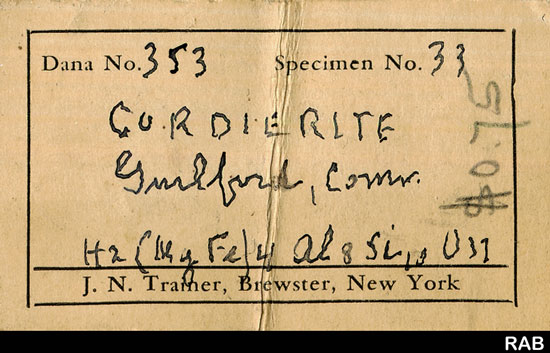 Dana No. 353 Specimen No. 33
CORDIERITE
Guilford, Conn.
H2(Mg Fe)4 Al8 Si10 O37
J. N. Trainer, Brewster, New York
$0.75
RAB